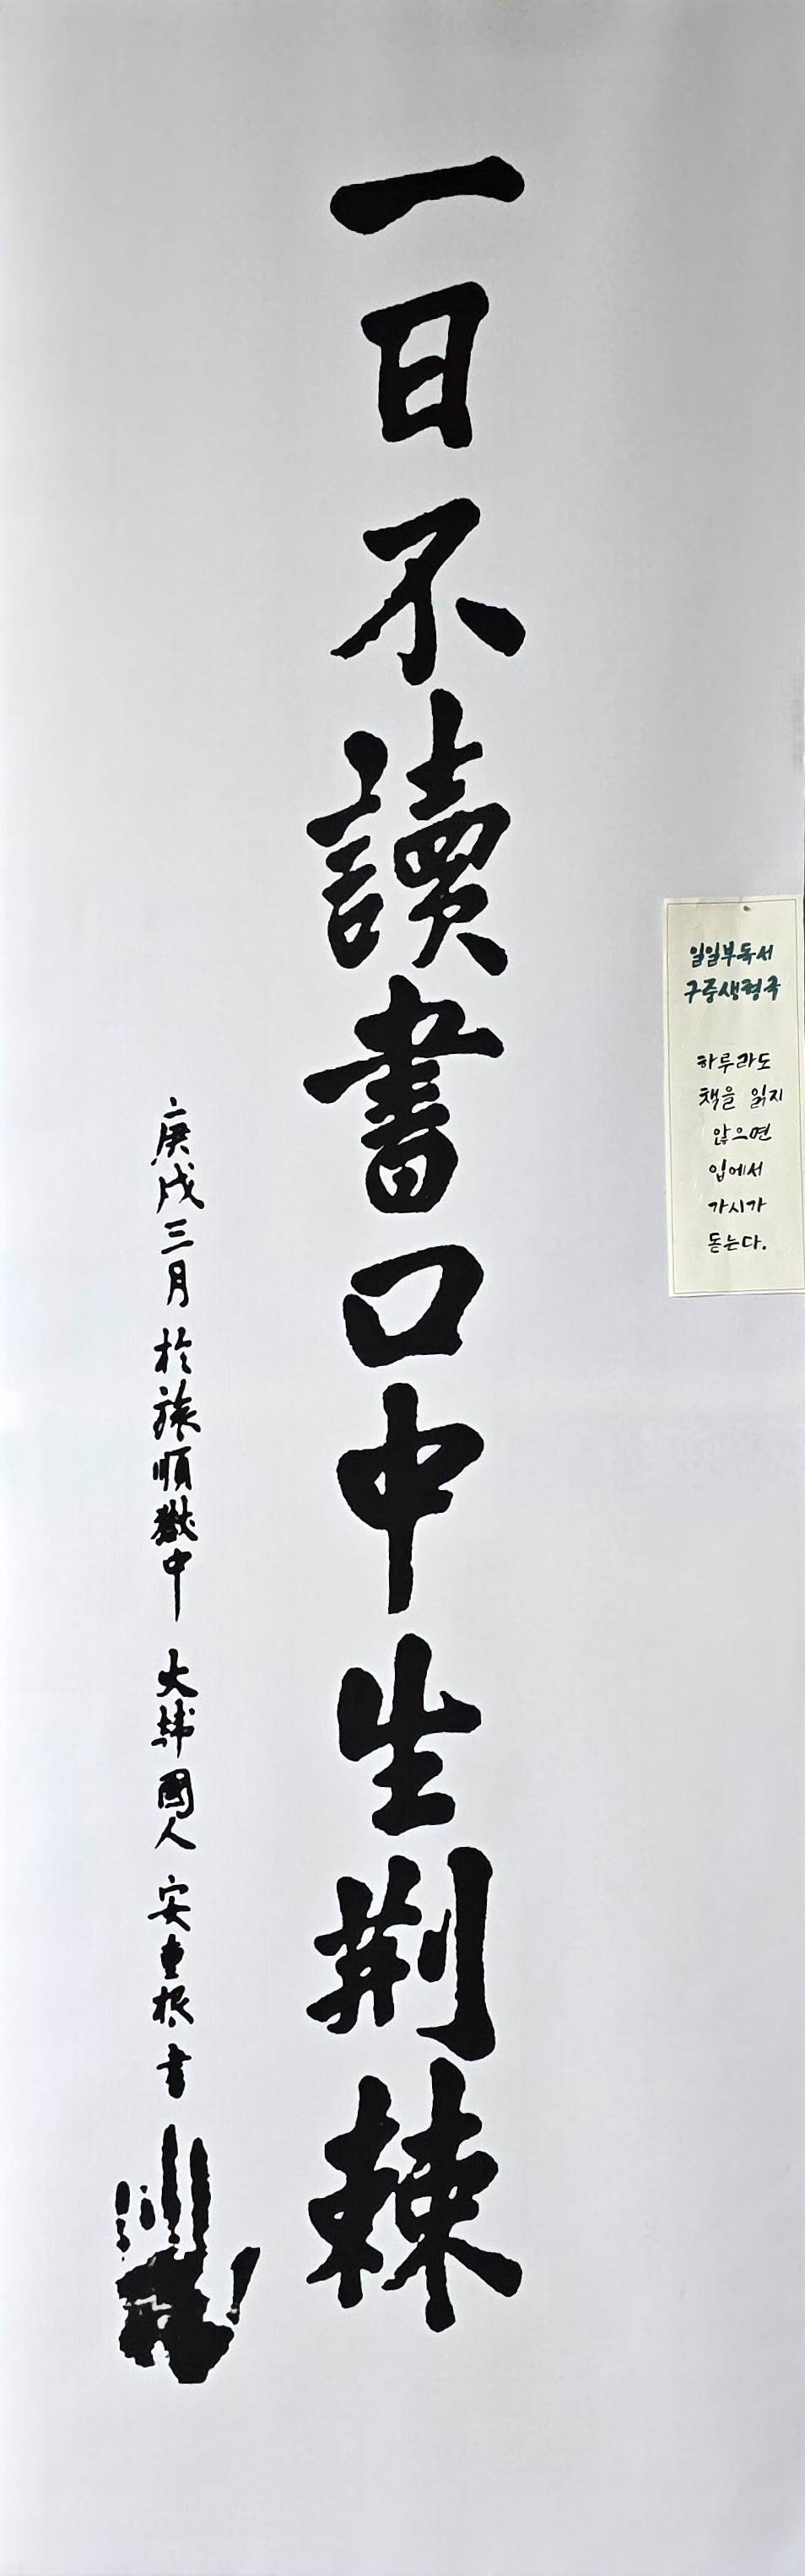 一日不讀書口中生荊棘
庚戌三月 於旅順獄中 大韓國人 安重根 書
일일부독서
구중생형극
하루라도
책을 읽지
않으면
입에서
가시가
돋는다.